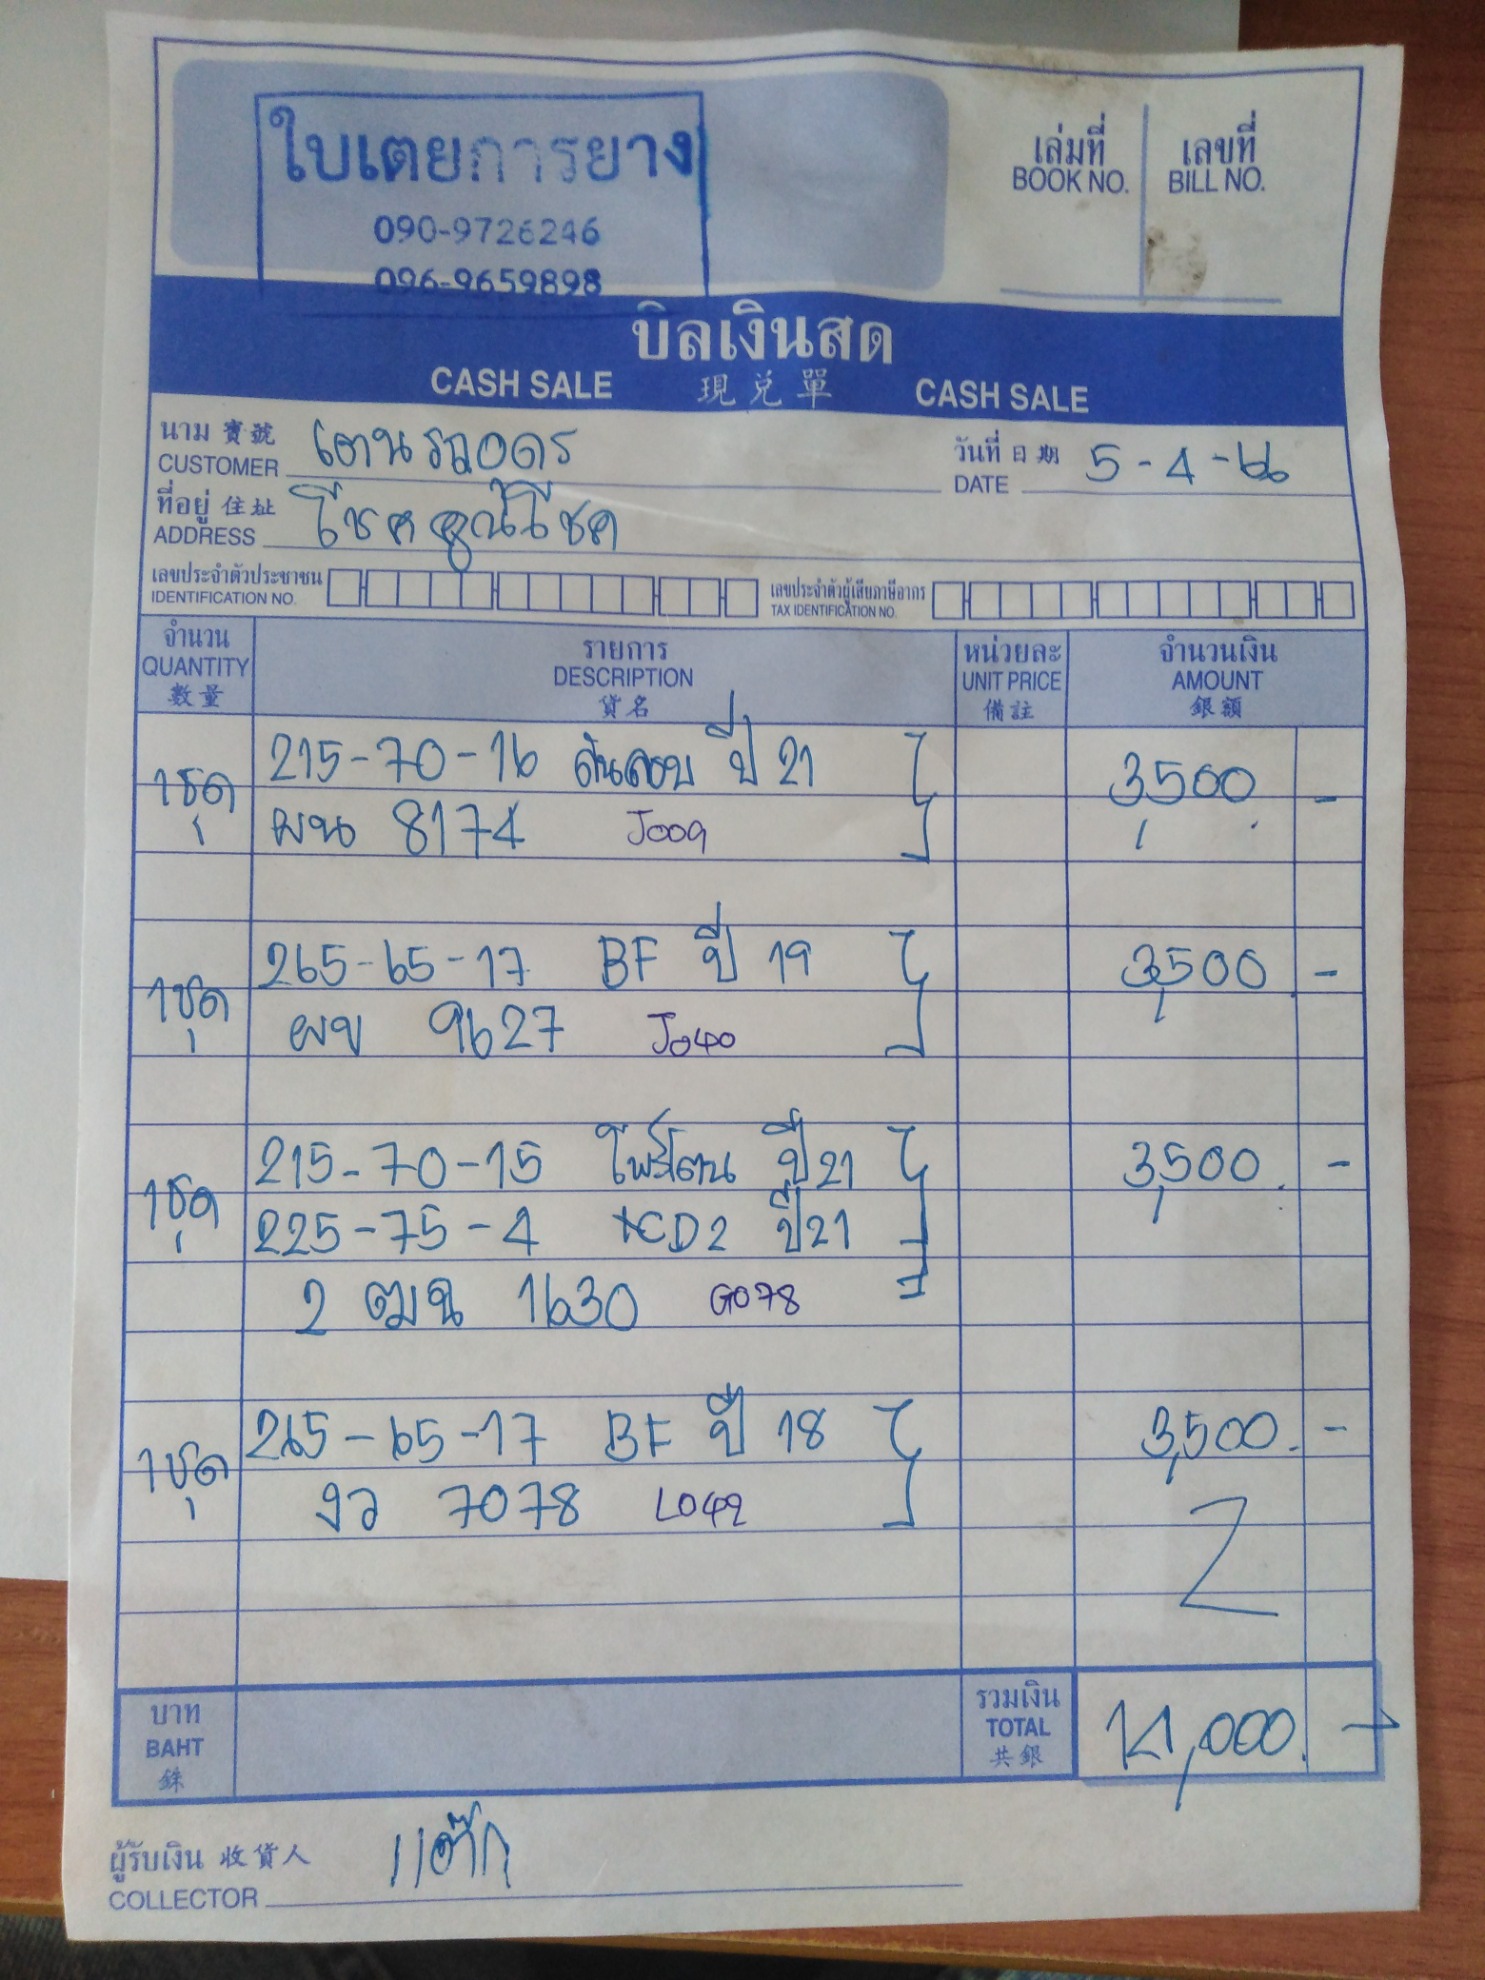 ใบเตยการยาง
090-9726246
096-9659898
เล่มที่ เลขที่
BOOK NO. BILL NO.
บิลเงินสด
CASH SALE 現兌單 CASH SALE
นาม 寶號 เตนรถอดร วันที่ 日期 5-4-66
CUSTOMER DATE
ที่อยู่ 住址 โชคคูณโชค
ADDRESS
เลขประจำตัวประชาชน เลขประจำตัวผู้เสียภาษีอากร
IDENTIFICATION NO. TAX IDENTIFICATION NO.
จำนวน รายการ หน่วยละ จำนวนเงิน
QUANTITY DESCRIPTION UNIT PRICE AMOUNT
數量 貨名 備註 銀額
1ชุด 215-70-16 ปี 21 3,500 -
ผน 8174 J009
1ชุด 265-65-17 BF ปี 19 3,500 -
ผข 9627 J040
1ชุด 215-70-15 ปี 21 3,500 -
225-75-4 ปี 21
2 ฒฉ 1630 G078
1ชุด 265-65-17 BF ปี 18 3,500 -
งว 7078 L042
บาท รวมเงิน
BAHT TOTAL 14,000 -
銖 共銀
ผู้รับเงิน 收貨人 แต๊ก
COLLECTOR